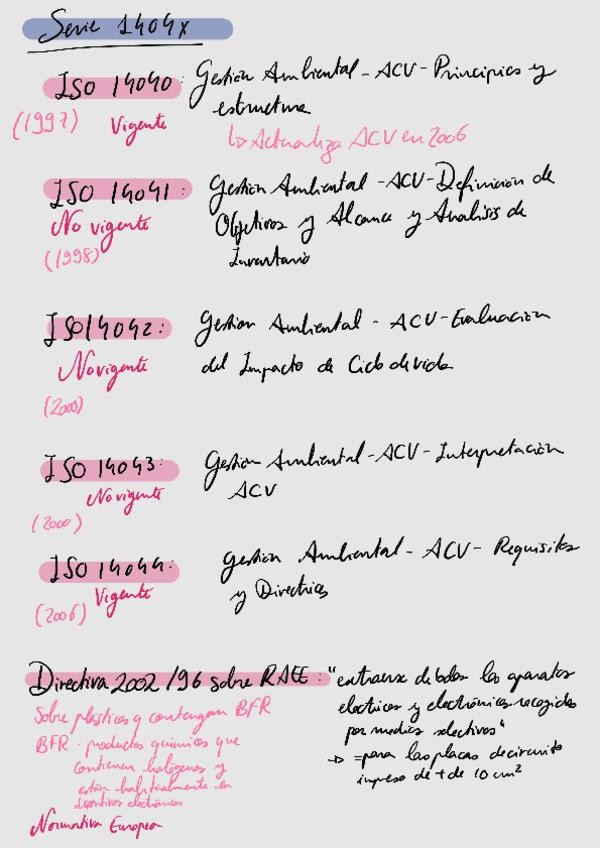 Serie 1404x
ISO 14040: Gestión Ambiental - ACV - Principios y
estructura
(1997) Vigente
↳ Actualiza ACV en 2006
ISO 14041: Gestión Ambiental - ACV - Definición de
No vigente Objetivos y Alcance y Análisis de
(1998) Inventario
ISO 14042: Gestión Ambiental - ACV - Evaluación
No vigente del Impacto de Ciclo de vida
(2000)
ISO 14043: Gestión Ambiental - ACV - Interpretación
No vigente ACV
(2000)
ISO 14044: Gestión Ambiental - ACV - Requisitos
Vigente y Directrices
(2006)
Directiva 2002/96 sobre RAEE: "extraerse de todos los aparatos
eléctricos y electrónicos recogidos
por medios selectivos"
→ = para las placas de circuito
impreso de + de 10 cm²
Sobre plásticos q contengan BFR
BFR: productos químicos que
contienen halógenos y
están habitualmente en
dispositivos electrónicos
Normativa Europea